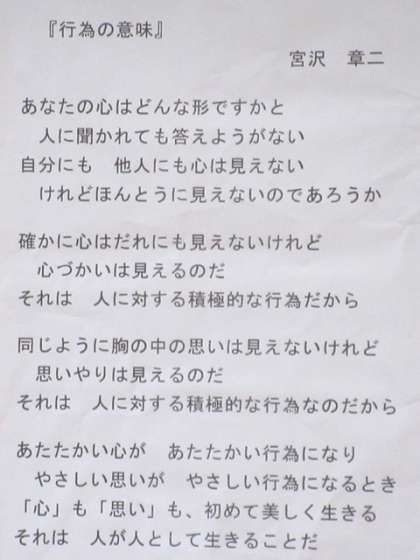 『行為の意味』
宮沢　章二
あなたの心はどんな形ですかと
人に聞かれても答えようがない
自分にも　他人にも心は見えない
けれどほんとうに見えないのであろうか
確かに心はだれにも見えないけれど
心づかいは見えるのだ
それは　人に対する積極的な行為だから
同じように胸の中の思いは見えないけれど
思いやりは見えるのだ
それは　人に対する積極的な行為なのだから
あたたかい心が　あたたかい行為になり
やさしい思いが　やさしい行為になるとき
「心」も「思い」も、初めて美しく生きる
それは　人が人として生きることだ